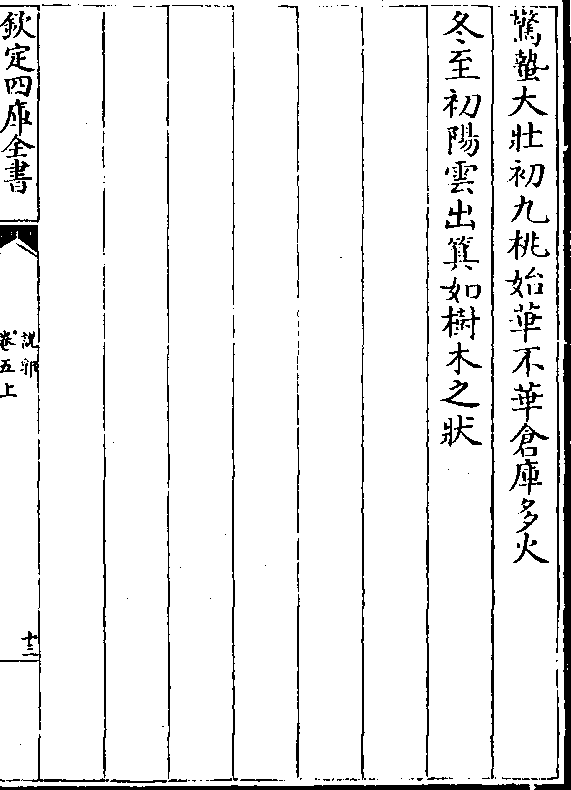 驚蟄大壯初九桃始華不華倉庫多火
冬至初陽雲出箕如樹木之狀
欽定四庫全書
說郛
卷五上
十三